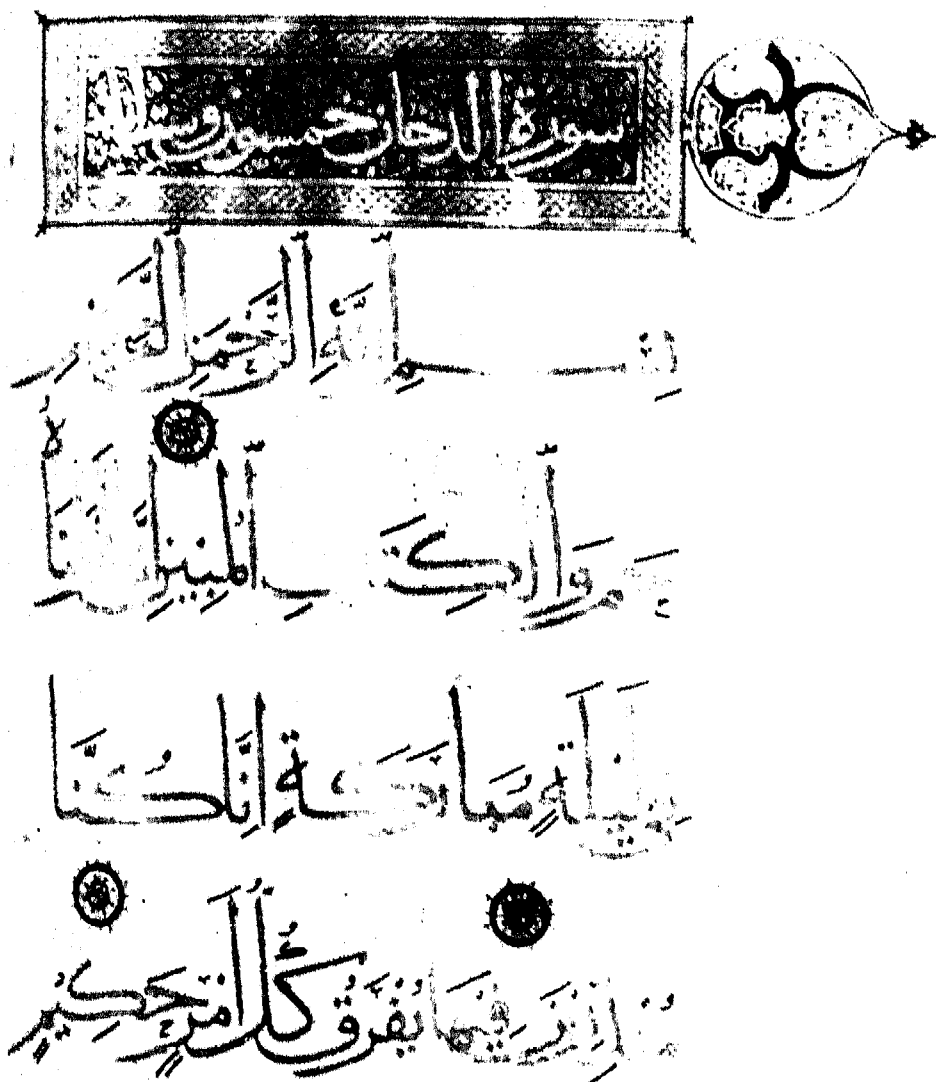 سورة الدخان خمسون
بِسْمِ اللَّهِ الرَّحْمَٰنِ الرَّحِيمِ
حم وَالْكِتَٰبِ الْمُبِينِ إِنَّا
فِي لَيْلَةٍ مُبَارَكَةٍ إِنَّا كُنَّا
مُنْذِرِينَ فِيهَا يُفْرَقُ كُلُّ أَمْرٍ حَكِيمٍ